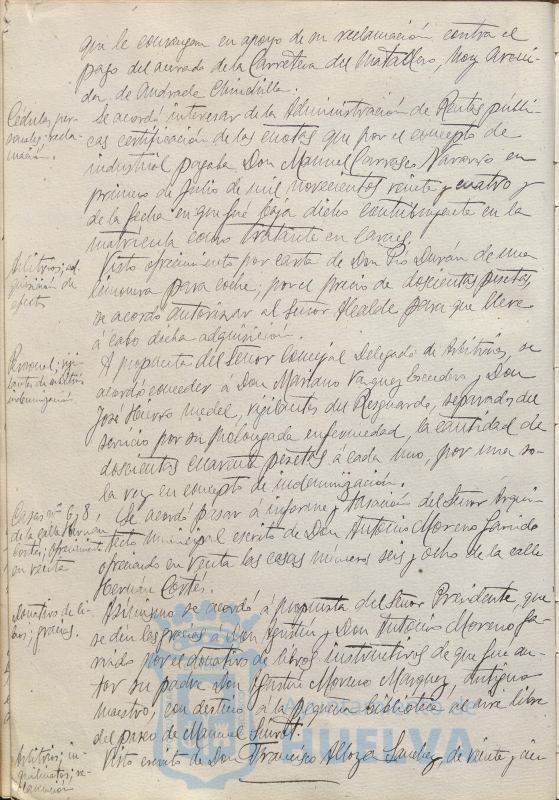 que le convengan en apoyo de su reclamación contra el
pago del acerado de la Carretera del Matadero, hoy Aveni-
da de Andrade Chinchilla.
Cédulas per-
sonales; recla-
mación.
Se acordó interesar de la Administración de Rentas públi-
cas certificación de las cuotas que por el concepto de
industrial pagaba Don Manuel Carrasco Navarro en
primero de Julio de mil novecientos veinte y cuatro y
de la fecha en que fué baja dicho contribuyente en la
matrícula como tratante en carnes.
Arbitrios; ad-
quisición de
efectos
Visto ofrecimiento por carta de Don Pío Durán de una
limonera para coche, por el precio de doscientas pesetas,
se acordó autorizar al Señor Alcalde para que lleve
á cabo dicha adquisición.
Personal; vigi-
lantes de arbitrios
indemnización
A propuesta del Señor Concejal Delegado de Arbitrios, se
acordó conceder á Don Mariano Vazquez Escudero y Don
José Hierro Medel, vigilantes del Resguardo, separados del
servicio por su prolongada enfermedad, la cantidad de
doscientas cuarenta pesetas á cada uno, por una so-
la vez en concepto de indemnización.
Casas nos 6 y 8
de la calle Hernán
Cortés; ofrecimiento
en venta
Se acordó pasar á informe y tasación del Señor Arqui-
tecto municipal escrito de Don Antonio Moreno Garrido
ofreciendo en venta las casas números seis y ocho de la calle
Hernán Cortés.
Donativo de li-
bros; gracias.
Asimismo se acordó á propuesta del Señor Presidente que
se den las gracias á Don Agustín y Don Antonio Moreno Ga-
rrido por el donativo de libros instructivos de que fue au-
tor su padre Don Agustín Moreno Marquez, antiguo
maestro, con destino á la pequeña biblioteca al aire libre
del paseo de Manuel Siurot.
Arbitrios; in-
quilinatos; re-
clamación
Visto escrito de Don Francisco Sanchez, de veinte y cin-
Ayuntamiento de
HUELVA